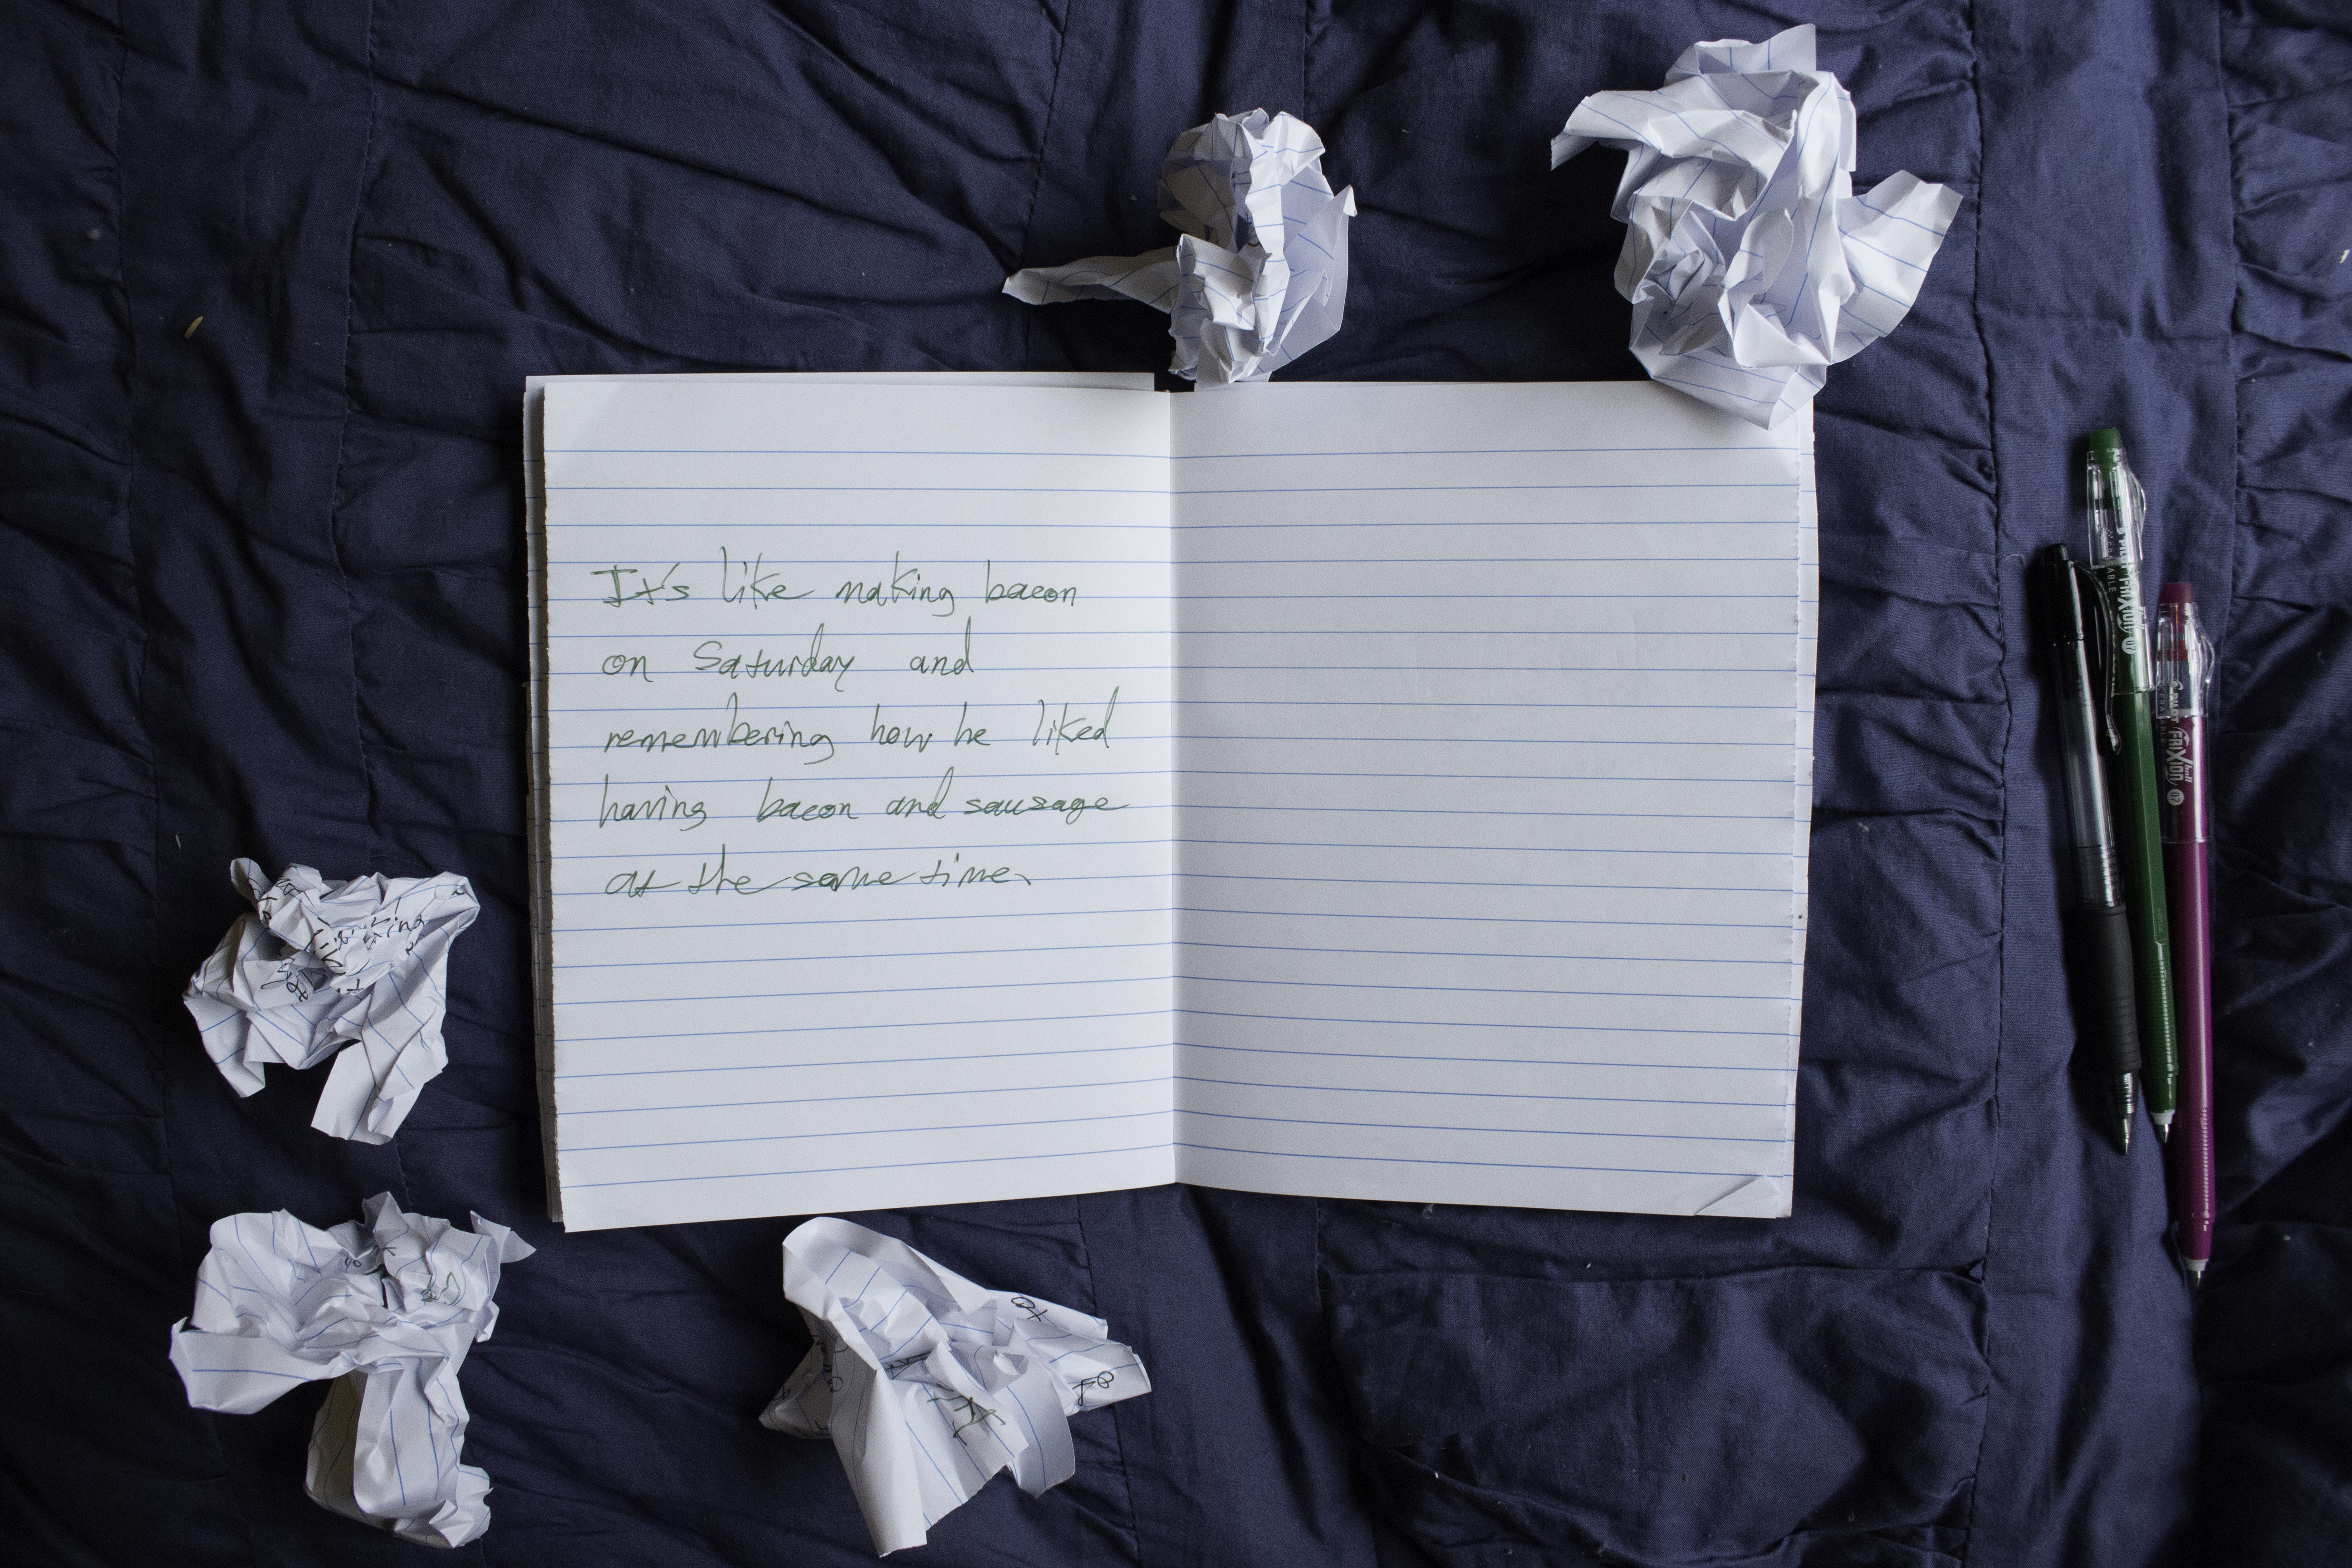 It's like making bacon
on Saturday and
remembering how he liked
having bacon and sausage
at the same time.
FRiXion
07
FRiXion
ball
07
at